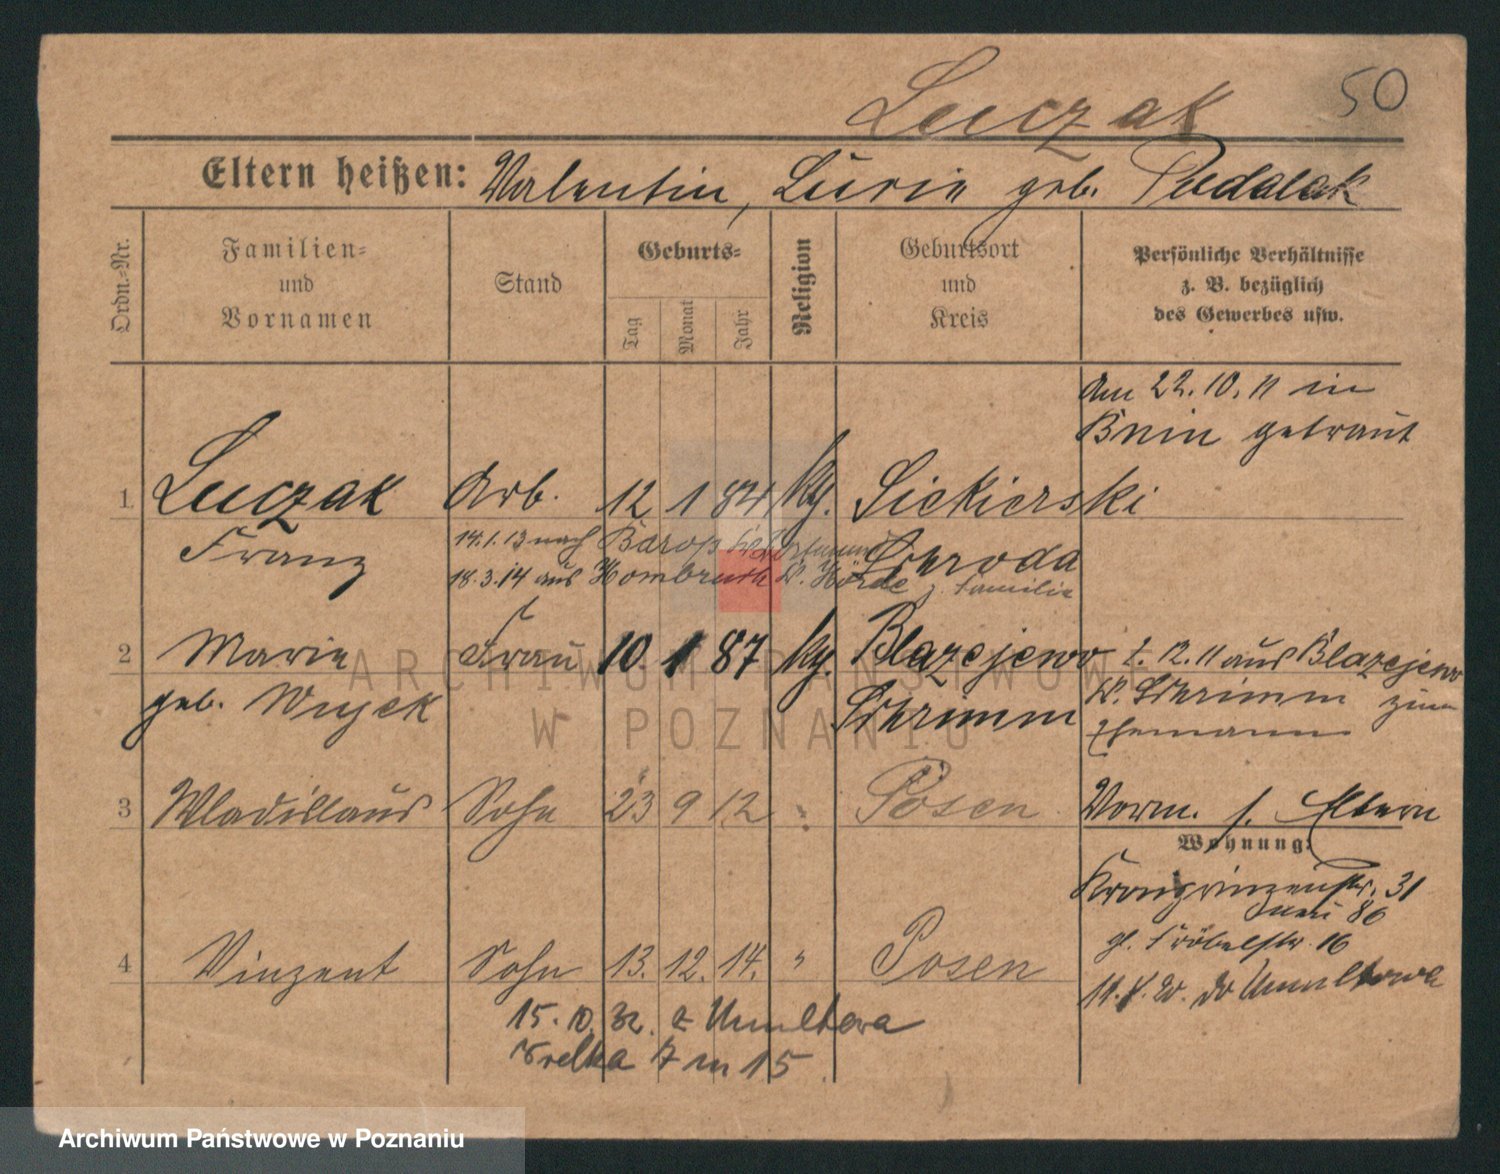 Luczak 50
Eltern heißen: Valentin, Lucie geb. Pudalak
Ordn.-Nr.
Familien-
und
Vornamen
Stand
Geburts-
Tag
Monat
Jahr
Religion
Geburtsort
und
Kreis
Persönliche Verhältnisse
z. B. bezüglich
des Gewerbes usw.
am 22.10.11 in
Bnin getraut
1 Luczak Arb. 12 1 84 kg. Siekierski
Franz Schroda
14.1.13 nach Barop
18.3.14 aus Hombruch Kr. Hörde z. Familie
2 Marie Frau 10 1 87 kg. Blazejewo
geb. Wujek Schrimm
2.12.11 aus Blazejewo
Kr. Schrimm zum
Ehemann
3 Wladislaus Sohn 23 9 12 " Posen
Vorm. s. Eltern
Wohnung:
Kronprinzenstr. 31
neu 86
gl. Fröbelstr. 16
4 Vinzent Sohn 13. 12. 14. " Posen
do Umultowa
15.10.32. z Umultowa
Wrelka 17 m 15
ARCHIWUM PAŃSTWOWE
W POZNANIU
Archiwum Państwowe w Poznaniu